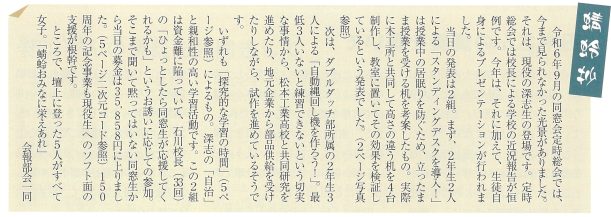 編集後記
令和6年9月の同窓会定時総会では、
今まで見られなかった光景がありました。
それは、現役の深志生の登場です。定時
総会では校長による学校の近況報告が恒
例です。今年は、それに加えて、生徒自
身によるプレゼンテーションが行われま
した。
当日の発表は2組。まず、2年生2人
による「スタンディングデスクを導入！」
は授業中の居眠りを防ぐため、立ったま
ま授業を受ける机を考案したもの。実際
に木工所と共同して高さの違う机を4台
制作し、教室に置いてその効果を検証し
ているという発表でした。（2ページ写真
参照）
次は、ダブルダッチ部所属の2年生3
人による「自動縄回し機を作ろう！」。最
低3人いないと練習できないという切実
な事情から、松本工業高校と共同研究を
進めたり、地元企業から部品供給を受け
たりしながら、試作を進めているそうで
す。
いずれも「探究的な学習の時間」（5ペ
ージ参照）によるもの。深志の「自治」
と親和性の高い学習活動です。この2組
は資金難に陥っていて、石川校長（33回）
の「ひょっとしたら同窓生が応援してく
れるかも」というお誘いに応じての参加。
そこまで聞いて黙ってはいない同窓生か
ら当日の募金は35,858円に上りまし
た。（5ページ二次元コード参照）150
周年の記念事業も現役生へのソフト面の
支援が根幹です。
ところで、壇上に登った5人がすべて
女子。「蜻蛉おみなに栄えあれ」
会報部会一同